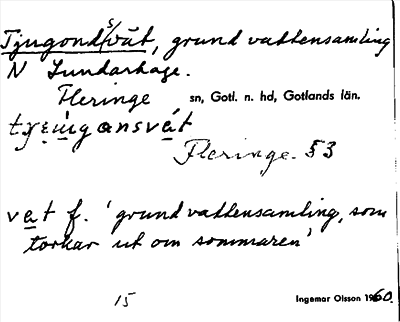 Tjugond/s/vät, grund vattensamling
N Sundarhage.
Fleringe sn, Gotl. n. hd, Gotlands län.
Fleringe. §3
vat f. 'grund vattensamling, som
torkar ut om sommaren'
15 Ingemar Olsson 1960.